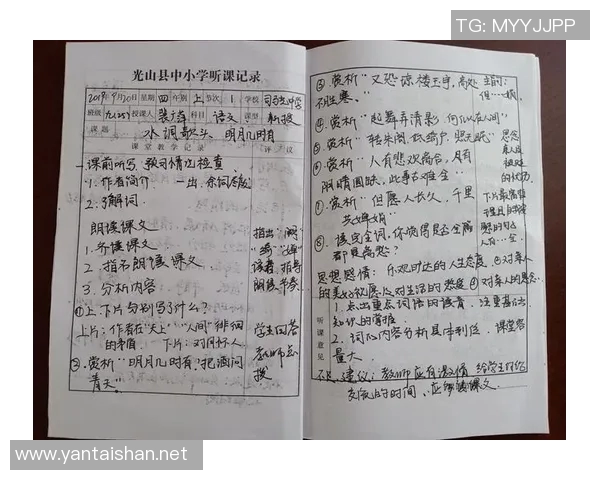 TG: MYYJJPP
光山县中小学听课记录
2019年9月20日 星期四 年级 上 节次 1 学校
班级 九(25) 授课人 科目 语文 课型 新授
课题 水调歌头·明月几时有
课堂教学记录 评议
一课前听写、预习情况检查
1.作者简介 一出
2.了解词
朗读课文
1.齐读课文
2.指名朗读课文
3.分析内容
①上、下片分别写了什么?
上片:作者在"天上""人间"徘徊
的矛盾 下片:对月怀人
②.赏析"明月几时有,把酒问
青天"
指出
读音,指导
朗读、节奏
学生回答
教师点
拨
③.赏析"又恐琼楼玉宇,高处
不胜寒。"
④.赏析"起舞弄清影,何似在人间"
⑤.赏析"转朱阁,低绮户,照无眠"
⑥.赏析"人有悲欢离合,月有
阴晴圆缺,此事古难全"
⑦.赏析"但愿人长久,千里
共婵娟"
⑧.读完全词,你觉得是否全篇
都是离愁?
思想感情:乐观旷达的人生态度 ②对亲人
的美好祝愿 对生活的热爱 ④对亲人的思念
听课意见
1.点出重点词语的读音 注重基础
知识的掌握
2.词的内容分析具体到位.课堂容
量大.
建议:教师应有激情 给学生
交流的时间、应 课文.
www.yantaishan.net